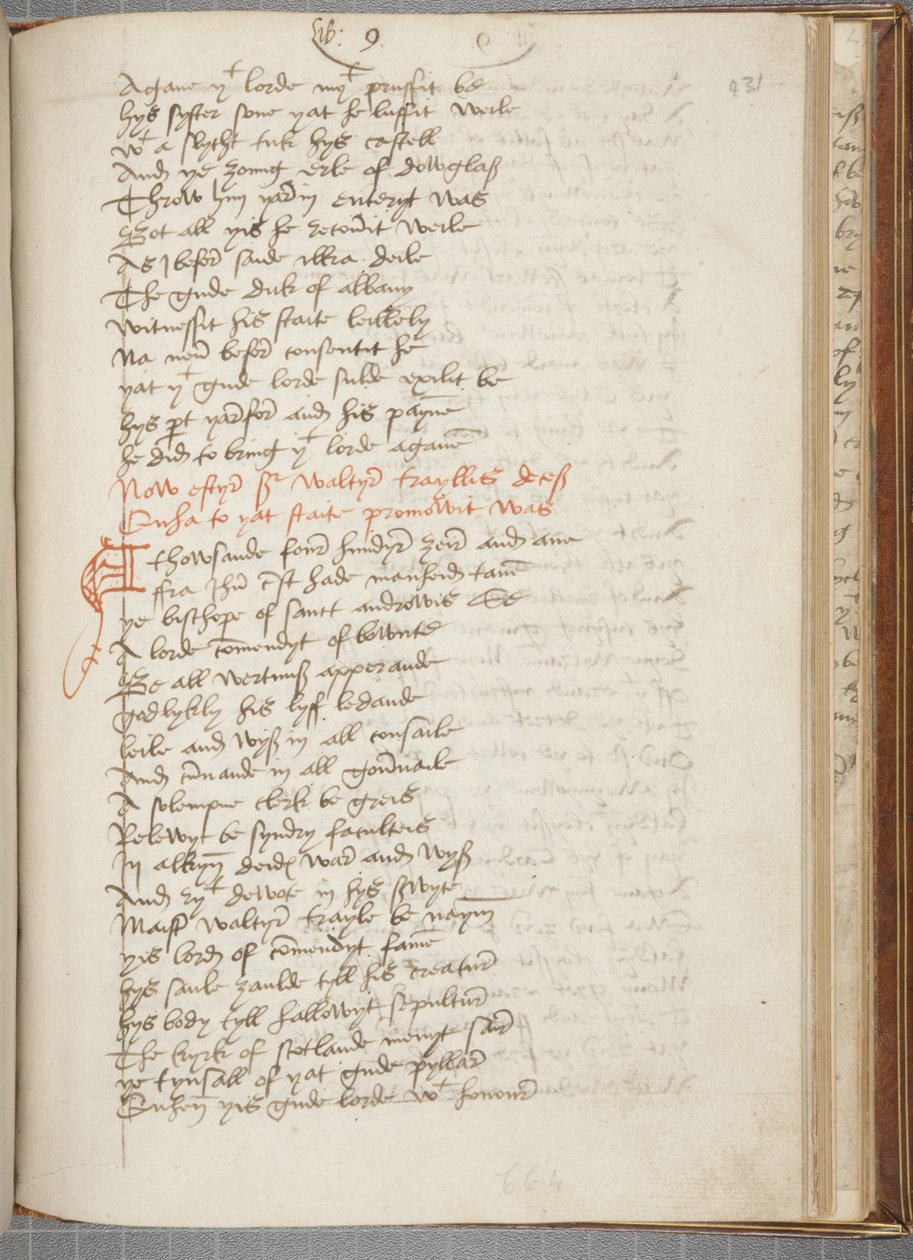 Lib: 9
431
Agane yt lorde my prussit be
hys syster sone yat he luffit weile
wt a slytht tuk hys castell
And ye zong erle of dowglaß
Throw hym yarin enteryt was
Bot all yis he recoverit weile
As I befor saide ilkra deile
The gude duk of albany
Witnessit his staite leillely
Na nevir befor consentit he
yat yt gude lorde sulde exilit be
hys part yarfor and his payne
he did to bring yt lorde agane
Now eftyr Sr waltyr trayllis deceß
Quha to yat staite promowit was
A thowsande four hundyr zeir and ane
ffra Ihu crist hade manheid tane
ye bischope of sanct androwis See
A lorde comendyt of bownte
Be all wertuiß apperande
godlykly his lyff ledande
leile and wyß in all consaile
And cunnande in all governaile
A solempne clerk be greis
Relewyt be syndry faculteis
In alkyn deidis war and wyß
And rycht dewote in hys serwyce
Maister waltyr trayle be naym
yis lord of comendyt fame
hys saule zaulde tyll his creatur
hys body tyll hallowyt sepultur
The kyrk of scotlande menyt sair
ye tynsall of yat gude pyllar
Quhen yis gude lorde wt honour
664